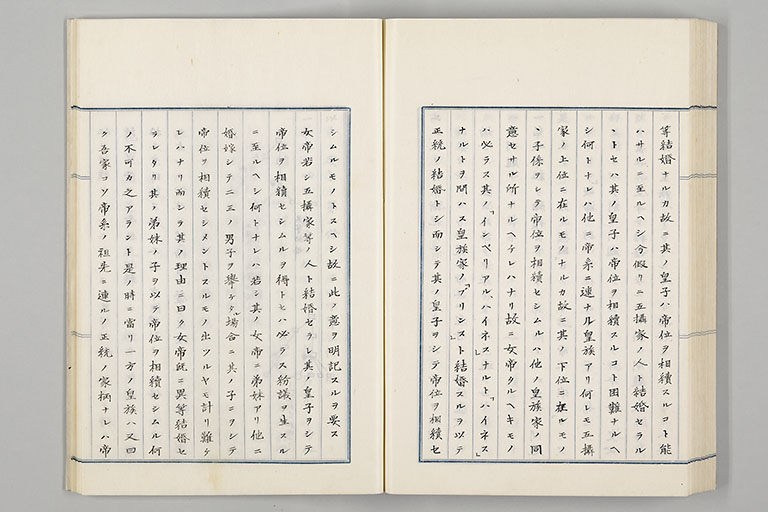 等結婚ナルカ故ニ其ノ皇子ハ帝位ヲ相續スルコト能
ハサルニ至ルヘシ今假リニ五攝家ノ人ト結婚セラル
ヽトセハ其ノ皇子ハ帝位ヲ相續スルコト困難ナルヘ
シ何トナレハ他ニ帝系ニ連ナル皇族アリ何レモ五攝
家ノ上位ニ在ルモノナルカ故ニ其ノ下位ニ在ルモノ
ヽ子孫ヲシテ帝位ヲ相續セシムルハ他ノ皇族家ノ同
意セサル所ナルヘケレハナリ故ニ女帝タルヘキモノ
ハ必ラス其ノ「インペリアル、ハイネスナルト「ハイネス」
ナルトヲ問ハス皇族家ノ「プリンス」ト結婚スルヲ以テ
正統ノ結婚トシ而シテ其ノ皇子ヲシテ帝位ヲ相續セ
シムルモノトスヘシ故ニ此ノ意ヲ明記スルヲ要ス
女帝若シ五攝家等ノ人ト結婚セラレ其ノ皇子ヲシテ
帝位ヲ相續セシムルヲ得トセハ必ラス紛議ヲ生スル
ニ至ルヘシ何トナレハ若シ其ノ女帝ニ弟妹アリ他ニ
婚嫁シテ二三ノ男子ヲ擧ケタル場合ニ其ノ子ヲシテ
帝位ヲ相續セシメントスルモノ出ツルヤモ計リ難ケ
レハナリ而シテ其ノ理由ニ曰ク女帝既ニ異等結婚セ
ラレタリ其ノ弟妹ノ子ヲ以テ帝位ヲ相續セシムル何
ノ不可カ之アラント是ノ時ニ當リ一方ノ皇族ハ又曰
ク吾家コソ帝系ノ祖先ニ連ルノ正統ノ家柄ナレハ帝